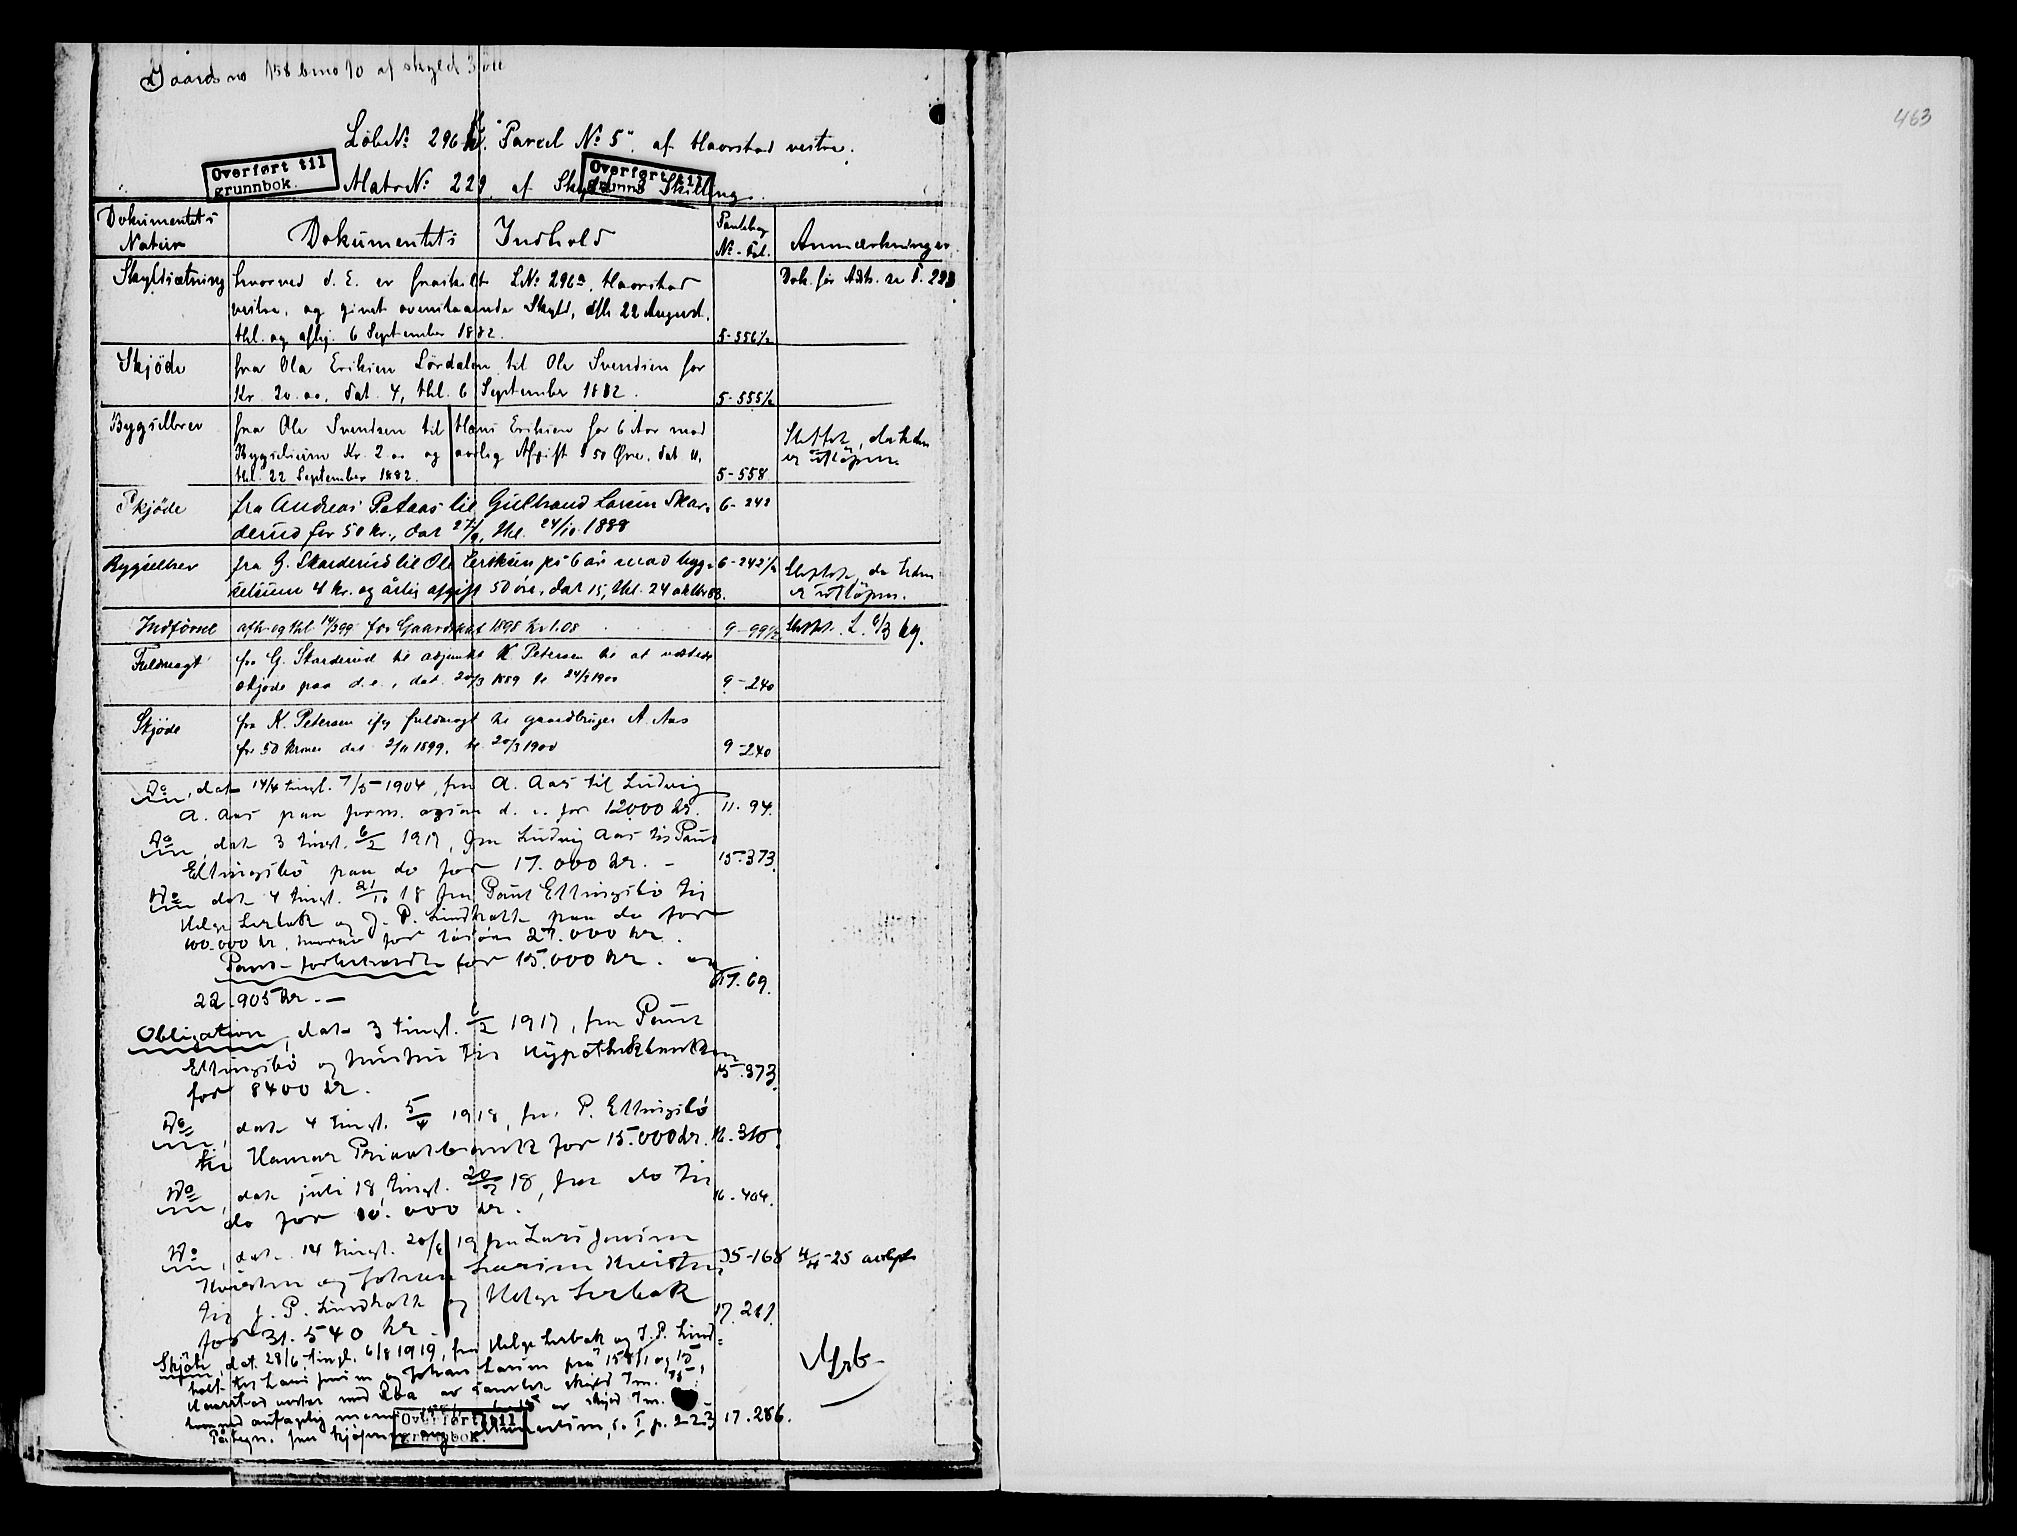 Gaards no 158 bno 10 af skyld 3 øre
463
Løbe No 296 "Parcel No 5" af Haarstad vestre.
Overført til
grunnbok.
Overført til
grunnb
Matr No 229, af Skyld 3 Skilling.
Dokumentets
Natur
Dokumentets Indhold
Pantebog
No - Fol.
Anmærkninger
Skyldsætning
hvorved d. E. er fraskilt LNo 296a, Haarstad
vestre, og givet ovenstaaende Skyld, afh. 22 August,
thl. og aflj. 6 September 1882.
5-556½
Dok. før Adk. se F. 223
Skjøde
fra Ola Eriksen Lördalen til Ole Svendsen for
Kr. 20.00, dat. 4, thl. 6 September 1882.
5-555½
Bygselbrev
fra Ole Svendsen til Hans Eriksen for 6 Aar mod
Bygselsum Kr. 2.00 og aarlig Afgift 50 Øre, dat. 4,
thl. 22 September 1882.
5-558
Slettet, da tiden
er utløpen.
Skjøde
fra Andreas Pataas til Gulbrand Larsen Skar-
derud for 50 kr., dat 27/9, thl. 24/10 1888
6-242
Bygselbrev
fra G. Skarderud til Ole Eriksen på 6 år mod byg-
selsum 4 kr. og årlig afgift 50 øre, dat 15, thl. 24 oktbr 88.
6-242½
Slettet, da tiden
er utløpen.
Indførsel
afh og thl 14/3 99 for Gaardskat 1898 kr 1.08
9-99½
Fuldmagt
fra G. Skarderud til adjunkt K Petersen til at udstede
skjøde paa d.e., dat. 20/3 1889 tl 24/3 1900
9-240
Skjøde
fra K. Petersen ifg fuldmagt til gaardbruger A. Aas
for 50 kroner dat 2/11 1899, tl 20/3 1900
9-240
Do, dat 14/4 tingl. 7/5 1904, fra A. Aas til Ludvig
A. Aas paa d. e. for 12000 kr.
11. 94.
Do, dat 3 tingl. 6/2 1917, fra Ludvig Aas til Paul
Ellingsbö paa do for 17.000 kr. -
15.373.
Do dat 4 tingl. 21/10 18 fra Paul Ellingsbö til
Helge Lerbak og J. P. Lindholt paa do for
100.000 kr, hvorav for løsøre 27.000 kr.
Pant-forbehold for 15.000 kr. og
17. 69.
22.905 kr. -
Obligation, dat 3 tingl. 6/2 1917, fra Paul
Ellingsbö og hustru til Hypothekbanken
for 8400 kr.
15.373.
Do, dat 4 tingl. 5/4 1918, fra P. Ellingsbö
til Hamar Privatbank for 15.000 kr.
16.310.
Do, dat juli 18, tingl. 20/7 18, fra do til
do for 10.000 kr.
16.404.
Do, dat. 14 tingl. 20/ 19 fra Lars Jensen
og Johan Larsen
35-168
4/4-25 avlyst
til J. P. Lindholt og Helge Lerbak
17.281.
for 31.540 kr.
Skjøte, dat. 28/6, tingl. 6/8 1919, fra Helge Lerbak og J. P. Lind-
holt til Lars Jensen og Johan Larsen paa 158/1 og 15
Haarstad vestre med av samlet skyld
av skyld
Overført til
grunnbok.
s. I p. 223
17.286.